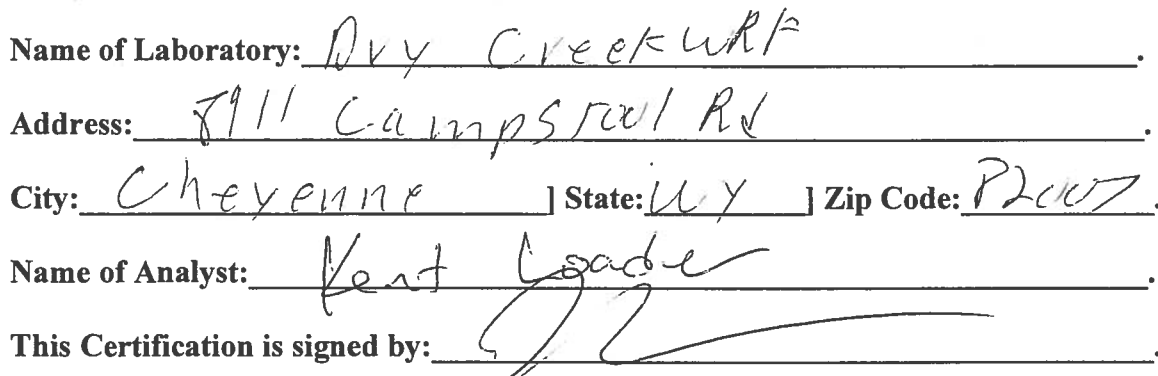 Name of Laboratory: Dry Creek WRF.
Address: 8911 Campstool Rd.
City: Cheyenne ] State: WY ] Zip Code: 82007.
Name of Analyst: Kent Loader.
This Certification is signed by: .